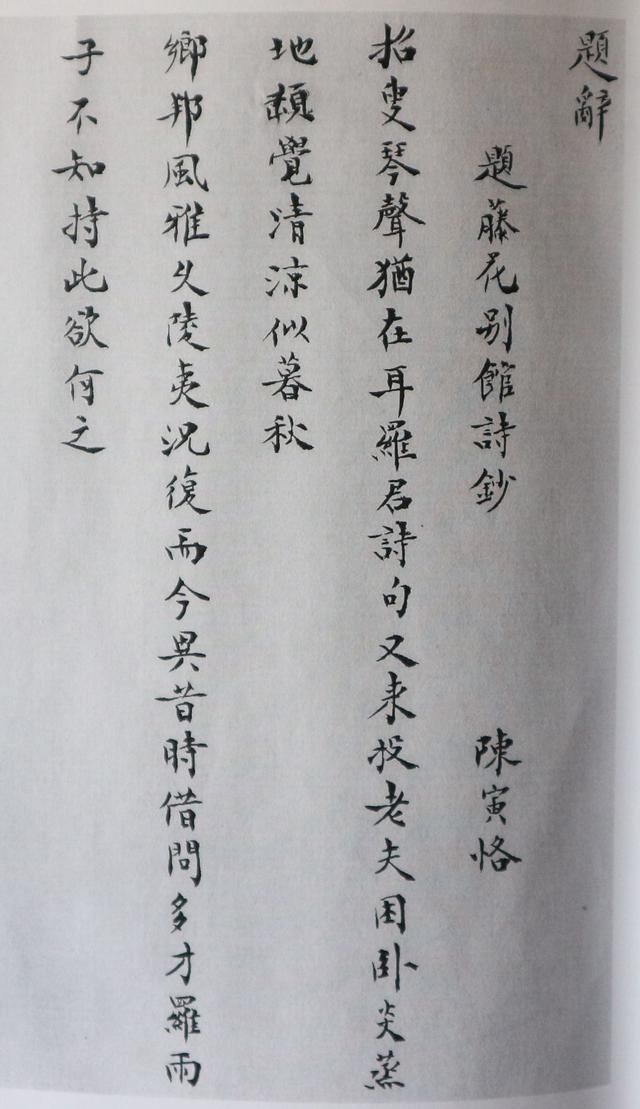 題辭
題藤花别館詩鈔 陳寅恪
招叟琴聲猶在耳羅君詩句又来投老夫困卧炎蒸
地頼覺清涼似暮秋
鄉邦風雅久陵夷況復而今異昔時借問多才羅雨
子不知持此欲何之